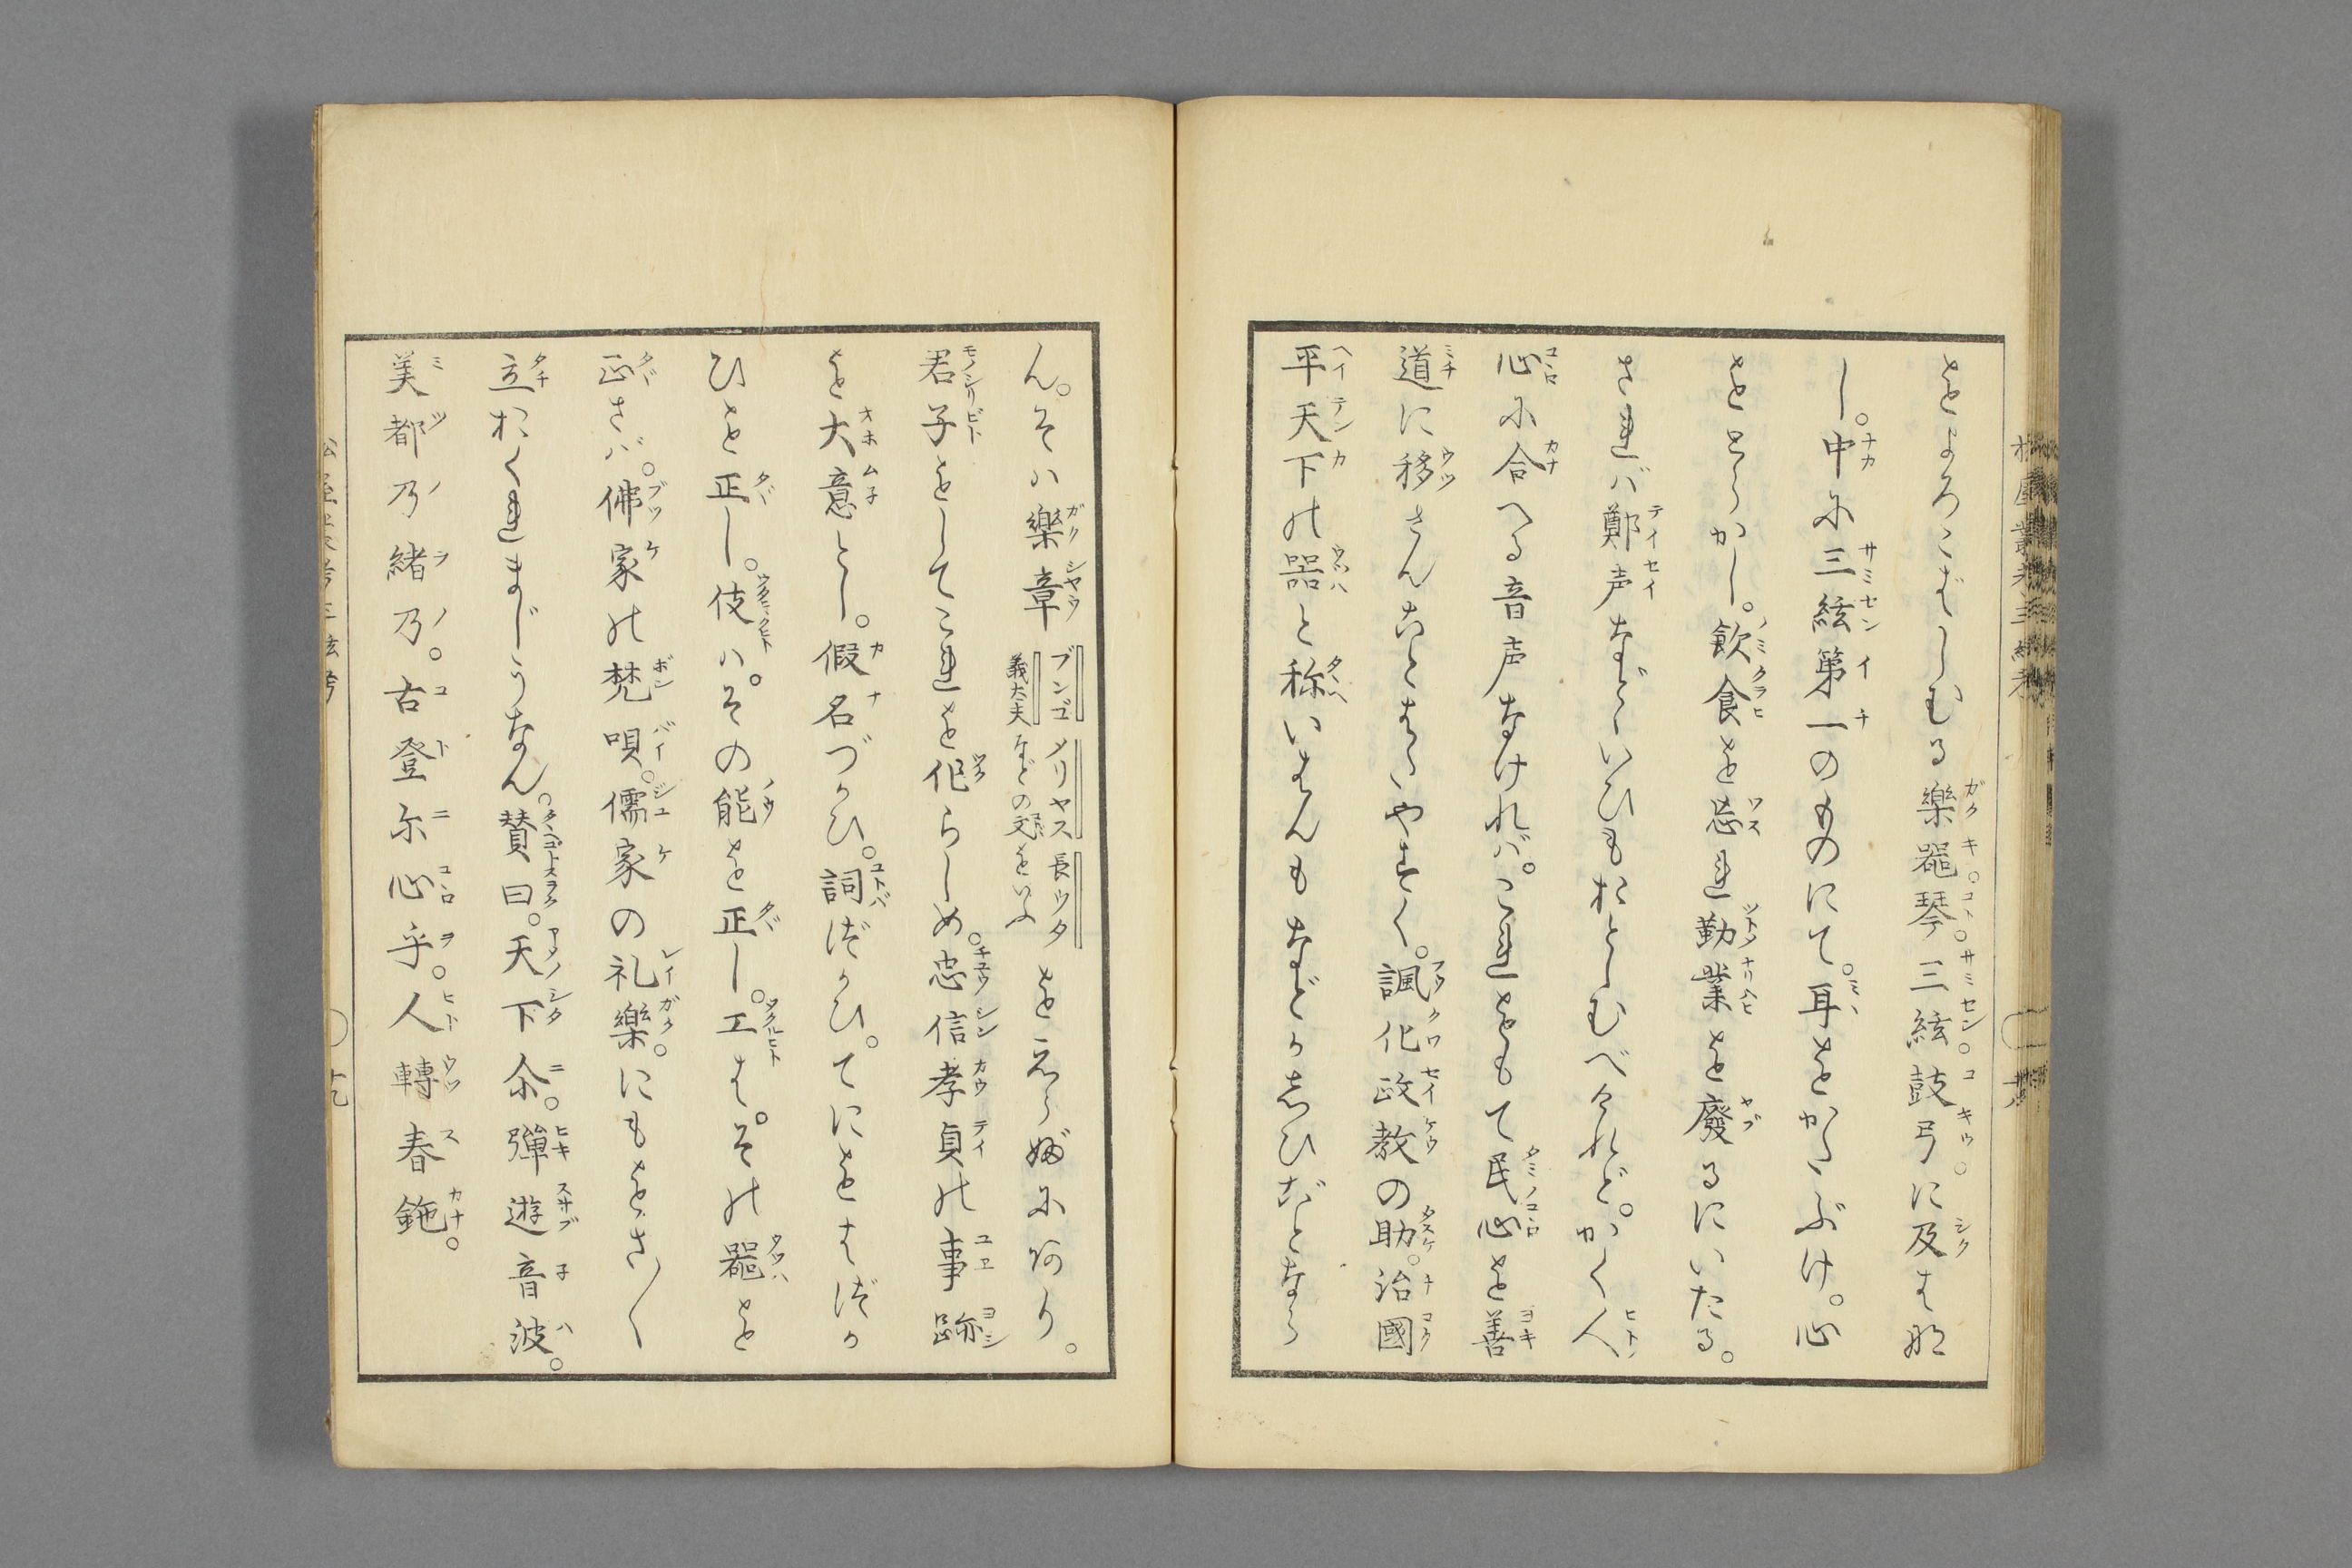 をよろこばしむる樂器琴。三絃。鼓弓。に及はな
し。中に三絃第一のものにて。耳をかたぶけ。心
をとらかし。飲食を忘れ勤業を廢るにいたる。
されバ鄭声などゝいひもおとしむべけれど。かく人
心に合へる音声なけれバ。これをもて民心を善
道に移さんことはいとやすく。諷化政教の助。治國
平天下の器と称いはんもなどかしひごとなら
ん。そハ樂章ブンゴメリヤス長ウタ義太夫などの文をいふをえらぶにあり。
君子をしてこれを作らしめ。忠信孝貞の事跡
を大意とし。假名づかひ。詞づかひ。てにをはづか
ひを正し。伎ハ。その能を正し。工は。その器を
正さバ。佛家の梵唄。儒家の礼樂。にもをさ〳〵
立おくれまじうなん。賛曰。天下尒。彈遊音波。
美都乃緒乃。古登尓心乎。人轉春鉇。